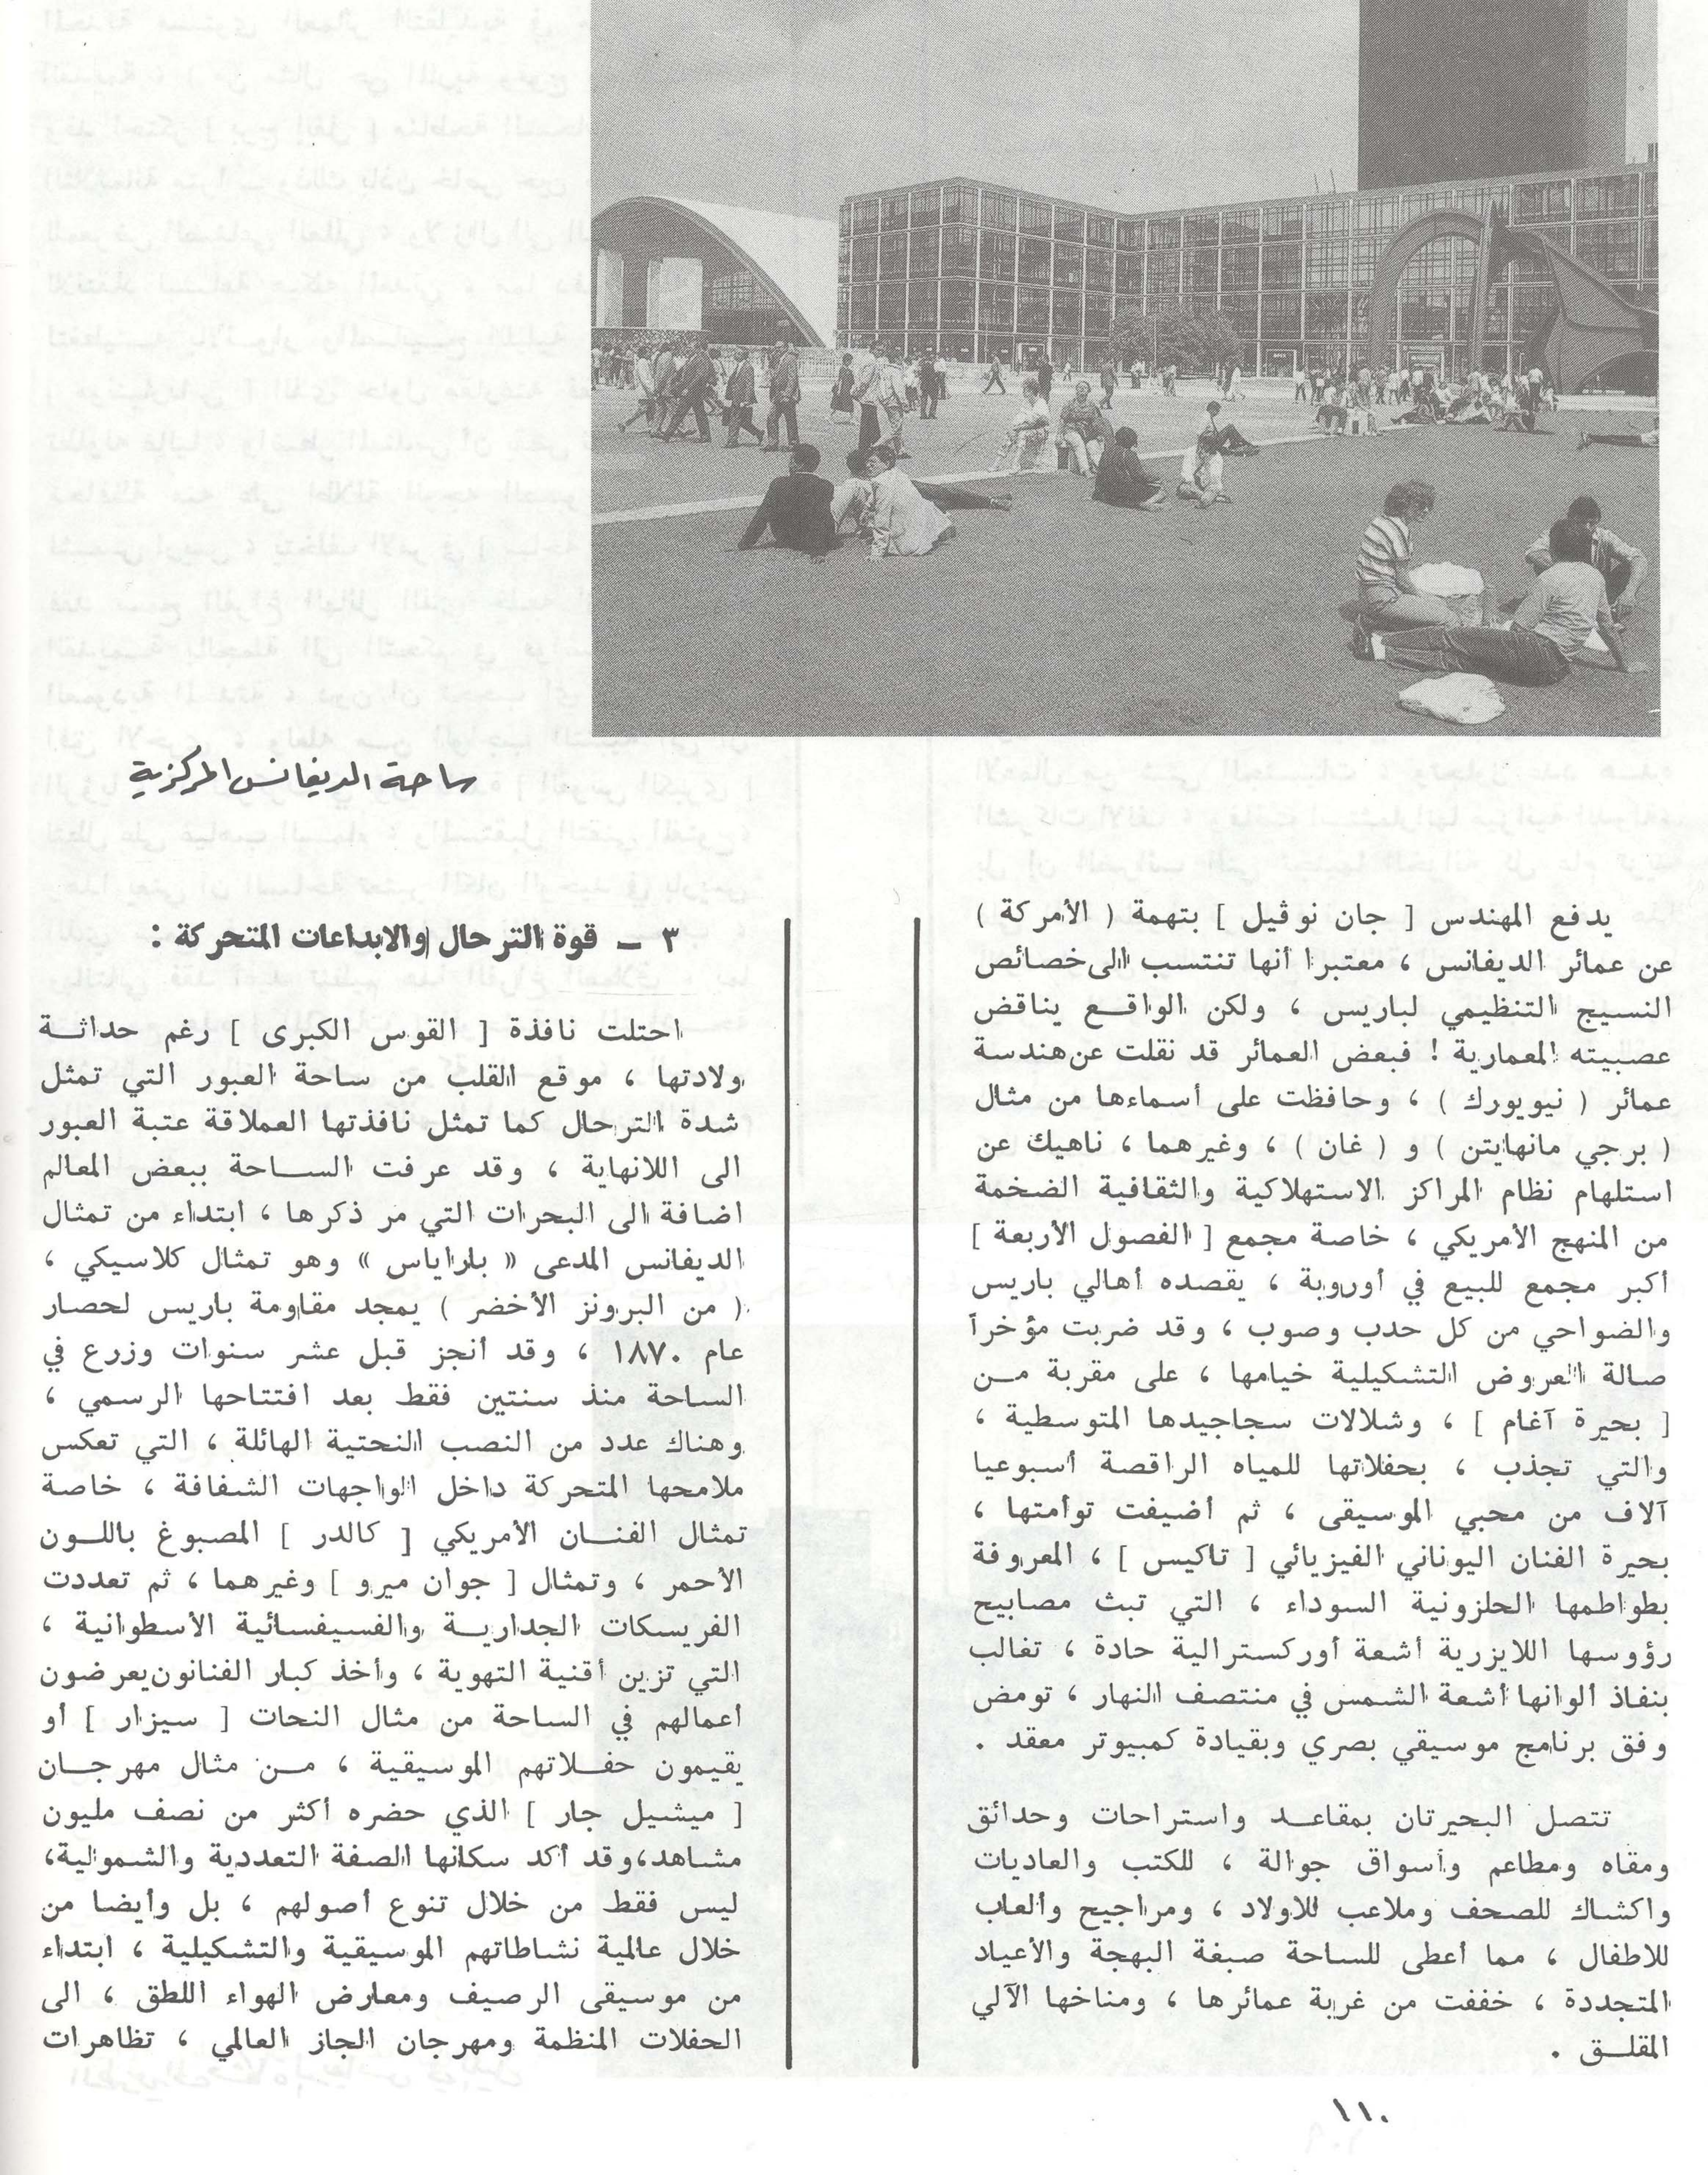 ساحة الديفانس المركزية
يدفع المهندس [ جان نوڤيل ] بتهمة ( الأمركة )
عن عمائر الديفانس ، معتبرا أنها تنتسب الى خصائص
النسيج التنظيمي لباريس ، ولكن الواقع يناقض
عصبيته المعمارية ! فبعض العمائر قد نقلت عن هندسة
عمائر ( نيويورك ) ، وحافظت على أسماءها من مثال
( برجي مانهايتن ) و ( غان ) ، وغيرهما ، ناهيك عن
استلهام نظام المراكز الاستهلاكية والثقافية الضخمة
من المنهج الأمريكي ، خاصة مجمع [ الفصول الأربعة ]
أكبر مجمع للبيع في أوروبة ، يقصده أهالي باريس
والضواحي من كل حدب وصوب ، وقد ضربت مؤخراً
صالة العروض التشكيلية خيامها ، على مقربة مـن
[ بحيرة آغام ] ، وشلالات سجاجيدها المتوسطية ،
والتي تجذب ، بحفلاتها للمياه الراقصة أسبوعيا
آلاف من محبي الموسيقى ، ثم أضيفت توأمتها ،
بحيرة الفنان اليوناني الفيزيائي [ تاكيس ] ، المعروفة
بطواطمها الحلزونية السوداء ، التي تبث مصابيح
رؤوسها اللايزرية أشعة أوركسترالية حادة ، تغالب
بنفاذ ألوانها أشعة الشمس في منتصف النهار ، تومض
وفق برنامج موسيقي بصري وبقيادة كمبيوتر معقد .
تتصل البحيرتان بمقاعـد واستراحات وحدائق
ومقاه ومطاعم وأسواق جوالة ، للكتب والعاديات
واكشاك للصحف وملاعب للاولاد ، ومراجيح وألعاب
للاطفال ، مما أعطى للساحة صبغة البهجة والأعياد
المتجددة ، خففت من غربة عمائرها ، ومناخها الآلي
المقلـق .
٣ ـ قوة الترحال والابداعات المتحركة :
احتلت نافذة [ القوس الكبرى ] رغم حداثـة
ولادتها ، موقع القلب من ساحة العبور التي تمثل
شدة الترحال كما تمثل نافذتها العملاقة عتبة العبور
الى اللانهاية ، وقد عرفت الساحة ببعض المعالم
اضافة الى البحرات التي مر ذكرها ، ابتداء من تمثال
الديفانس المدعى « باراياس » وهو تمثال كلاسيكي ،
( من البرونز الأخضر ) يمجد مقاومة باريس لحصار
عام ١٨٧٠ ، وقد أنجز قبل عشر سنوات وزرع في
الساحة منذ سنتين فقط بعد افتتاحها الرسمي ،
وهناك عدد من النصب النحتية الهائلة ، التي تعكس
ملامحها المتحركة داخل الواجهات الشفافة ، خاصة
تمثال الفنـان الأمريكي [ كالدر ] المصبوغ باللـون
الأحمر ، وتمثال [ جوان ميرو ] وغيرهما ، ثم تعددت
الفريسكات الجداريـة والفسيفسائية الأسطوانية ،
التي تزين أقنية التهوية ، وأخذ كبار الفنانون يعرضون
أعمالهم في الساحة من مثال النحات [ سيزار ] أو
يقيمون حفـلاتهم الموسيقية ، مـن مثال مهرجـان
[ ميشيل جار ] الذي حضره أكثر من نصف مليون
مشاهد،وقد أكد سكانها الصفة التعددية والشمولية،
ليس فقط من خلال تنوع أصولهم ، بل وأيضا من
خلال عالمية نشاطاتهم الموسيقية والتشكيلية ، ابتداء
من موسيقى الرصيف ومعارض الهواء اللطق ، الى
الحفلات المنظمة ومهرجان الجاز العالمي ، تظاهرات
١١٠